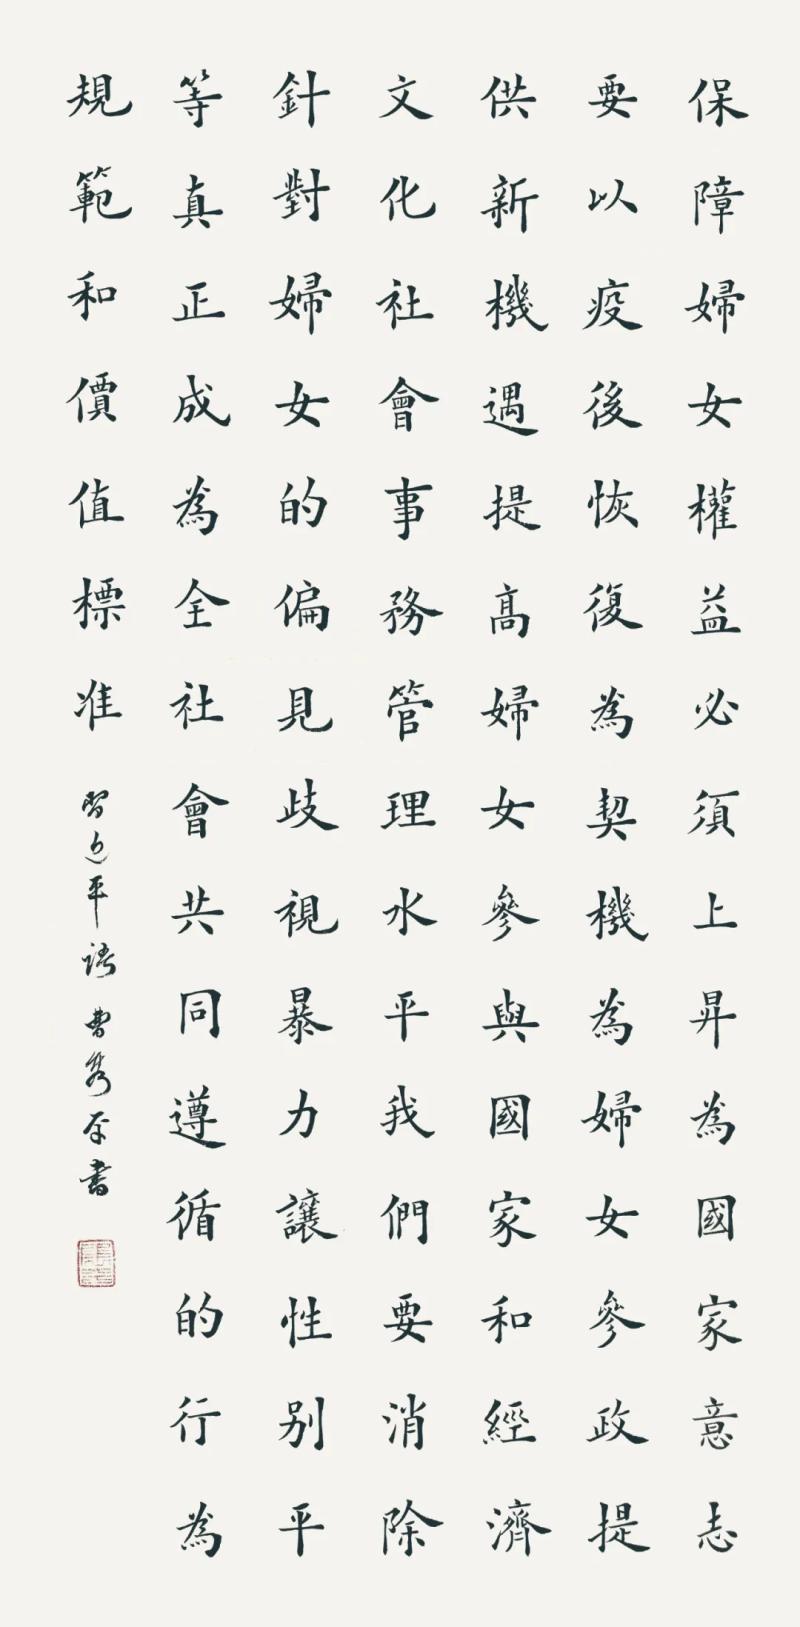 保障婦女權益必須上昇為國家意志
要以疫後恢復為契機為婦女參政提
供新機遇提高婦女參與國家和經濟
文化社會事務管理水平我們要消除
針對婦女的偏見歧視暴力讓性别平
等真正成為全社會共同遵循的行為
規範和價值標准
習近平語 曹秀書